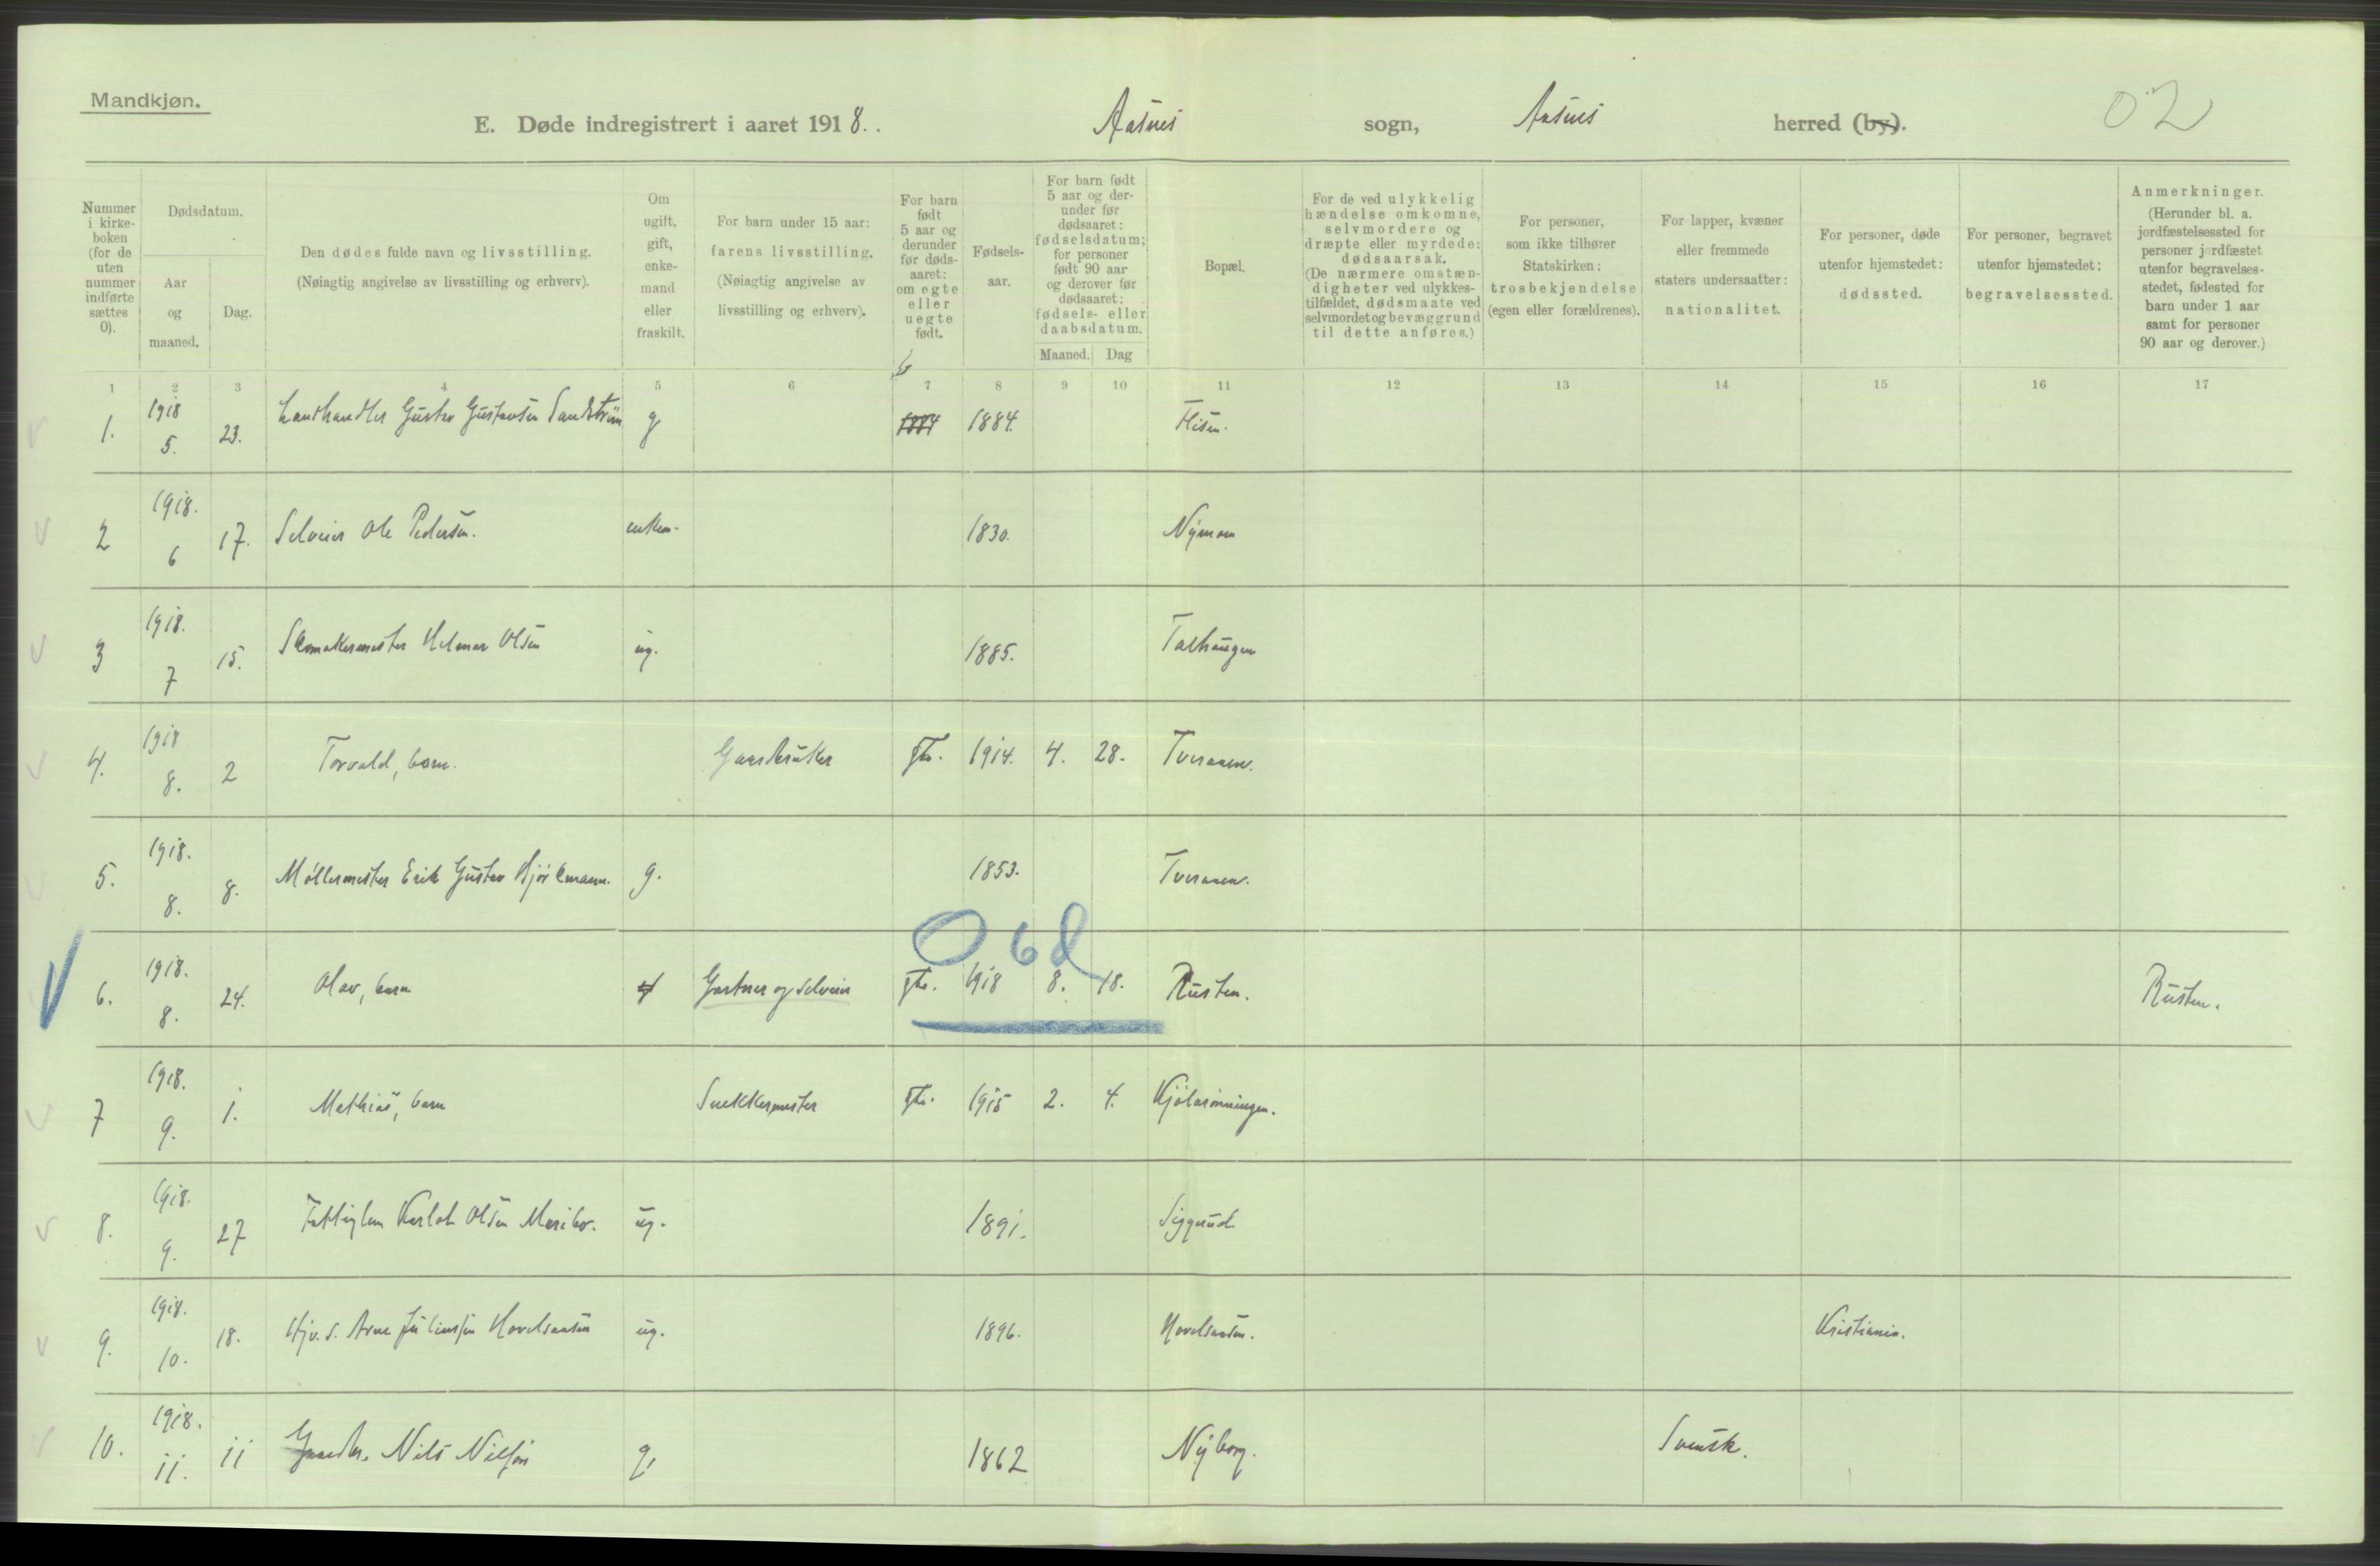 Mandkjøn.
E. Døde indregistrert i aaret 1918. Aasnes sogn, Aasnes herred (by). 02
Nummer i kirke-boken (for de uten nummer indførte sættes 0).
Dødsdatum.
Aar og maaned.
Dag.
Den dødes fulde navn og livsstilling.
(Nøiagtig angivelse av livsstilling og erhverv).
Om ugift, gift, enke-mand eller fraskilt.
For barn under 15 aar:
farens livsstilling.
(Nøiagtig angivelse av livsstilling og erhverv).
For barn født 5 aar og derunder før døds-aaret: om egte eller uegte født.
Fødsels-aar.
For barn født 5 aar og der-under før dødsaaret: fødselsdatum; for personer født 90 aar og derover før dødsaaret: fødsels- eller daabsdatum.
Maaned. Dag
Bopæl.
For de ved ulykkelig hændelse omkomne, selvmordere og dræpte eller myrdede: dødsaarsak. (De nærmere omstæn-digheter ved ulykkes-tilfældet, dødsmaate ved selvmordet og bevæggrund til dette anføres.)
For personer, som ikke tilhører Statskirken: trosbekjendelse (egen eller forældrenes).
For lapper, kvæner eller fremmede staters undersaatter: nationalitet.
For personer, døde utenfor hjemstedet: dødssted.
For personer, begravet utenfor hjemstedet: begravelsessted.
Anmerkninger.
(Herunder bl. a. jordfæstelsessted for personer jordfæstet utenfor begravelses-stedet, fødested for barn under 1 aar samt for personer 90 aar og derover.)
1 2 3 4 5 6 7 8 9 10 11 12 13 14 15 16 17
1. 1918 5. 23. Landhandler Gustav Gustavsen Sandström g 1884 1884. Flisen.
2 1918. 6 17. Selveier Ole Pedersen. enkem. 1830. Nymoen
3 1918. 7 15. Skomakermester Helmer Olsen ug. 1885. Talhaugen
4. 1918 8. 2 Torvald, barn. Gaardbruker gte. 1914. 4. 28. Tveraaen.
5. 1918. 8. 8. Möllermester Erik Gustav Björkmann. g. 1853. Tveraaen.
068
6. 1918. 8. 24. Olav, barn Gartner og selveier gte. 1918 8. 18. Rusten. Rusten.
7 1918. 9. 1. Mathias, barn Snekkermester gte. 1915 2. 4. Kjölarönningen.
8. 1918. 9. 27 Fattiglem Karl Olsen Maribo. ug. 1891. Siggerud
9. 1918. 10. 18. Hjv. s. Arne Juliussen Hovelsaasen ug. 1896. Hovelsaasen. Kristiania.
10. 1918. 11. 11 Gaardbr. Nils Nilsson g. 1862 Nyborg. Svensk.